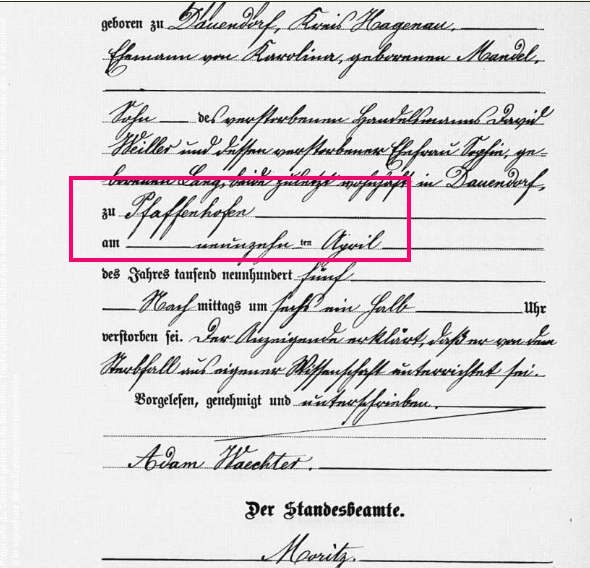 geboren zu Dauendorf, Kreis Hagenau,
Ehemann von Karolina, geborenen Mandel,
Sohn des verstorbenen Handelsmanns David
Weiller und dessen verstorbener Ehefrau Sophie, ge-
borenen Lang, beide zuletzt wohnhaft in Dauendorf,
zu Pfaffenhofen
am neunzehn ten April
des Jahres tausend neunhundert fünf
Nach mittags um sechs ein halb Uhr
verstorben sei. Der Anzeigende erklärt, daß er von dem
Sterbfall aus eigener Wissenschaft unterrichtet sei.
Vorgelesen, genehmigt und unterschrieben.
Adam Waechter.
Der Standesbeamte.
Moritz.